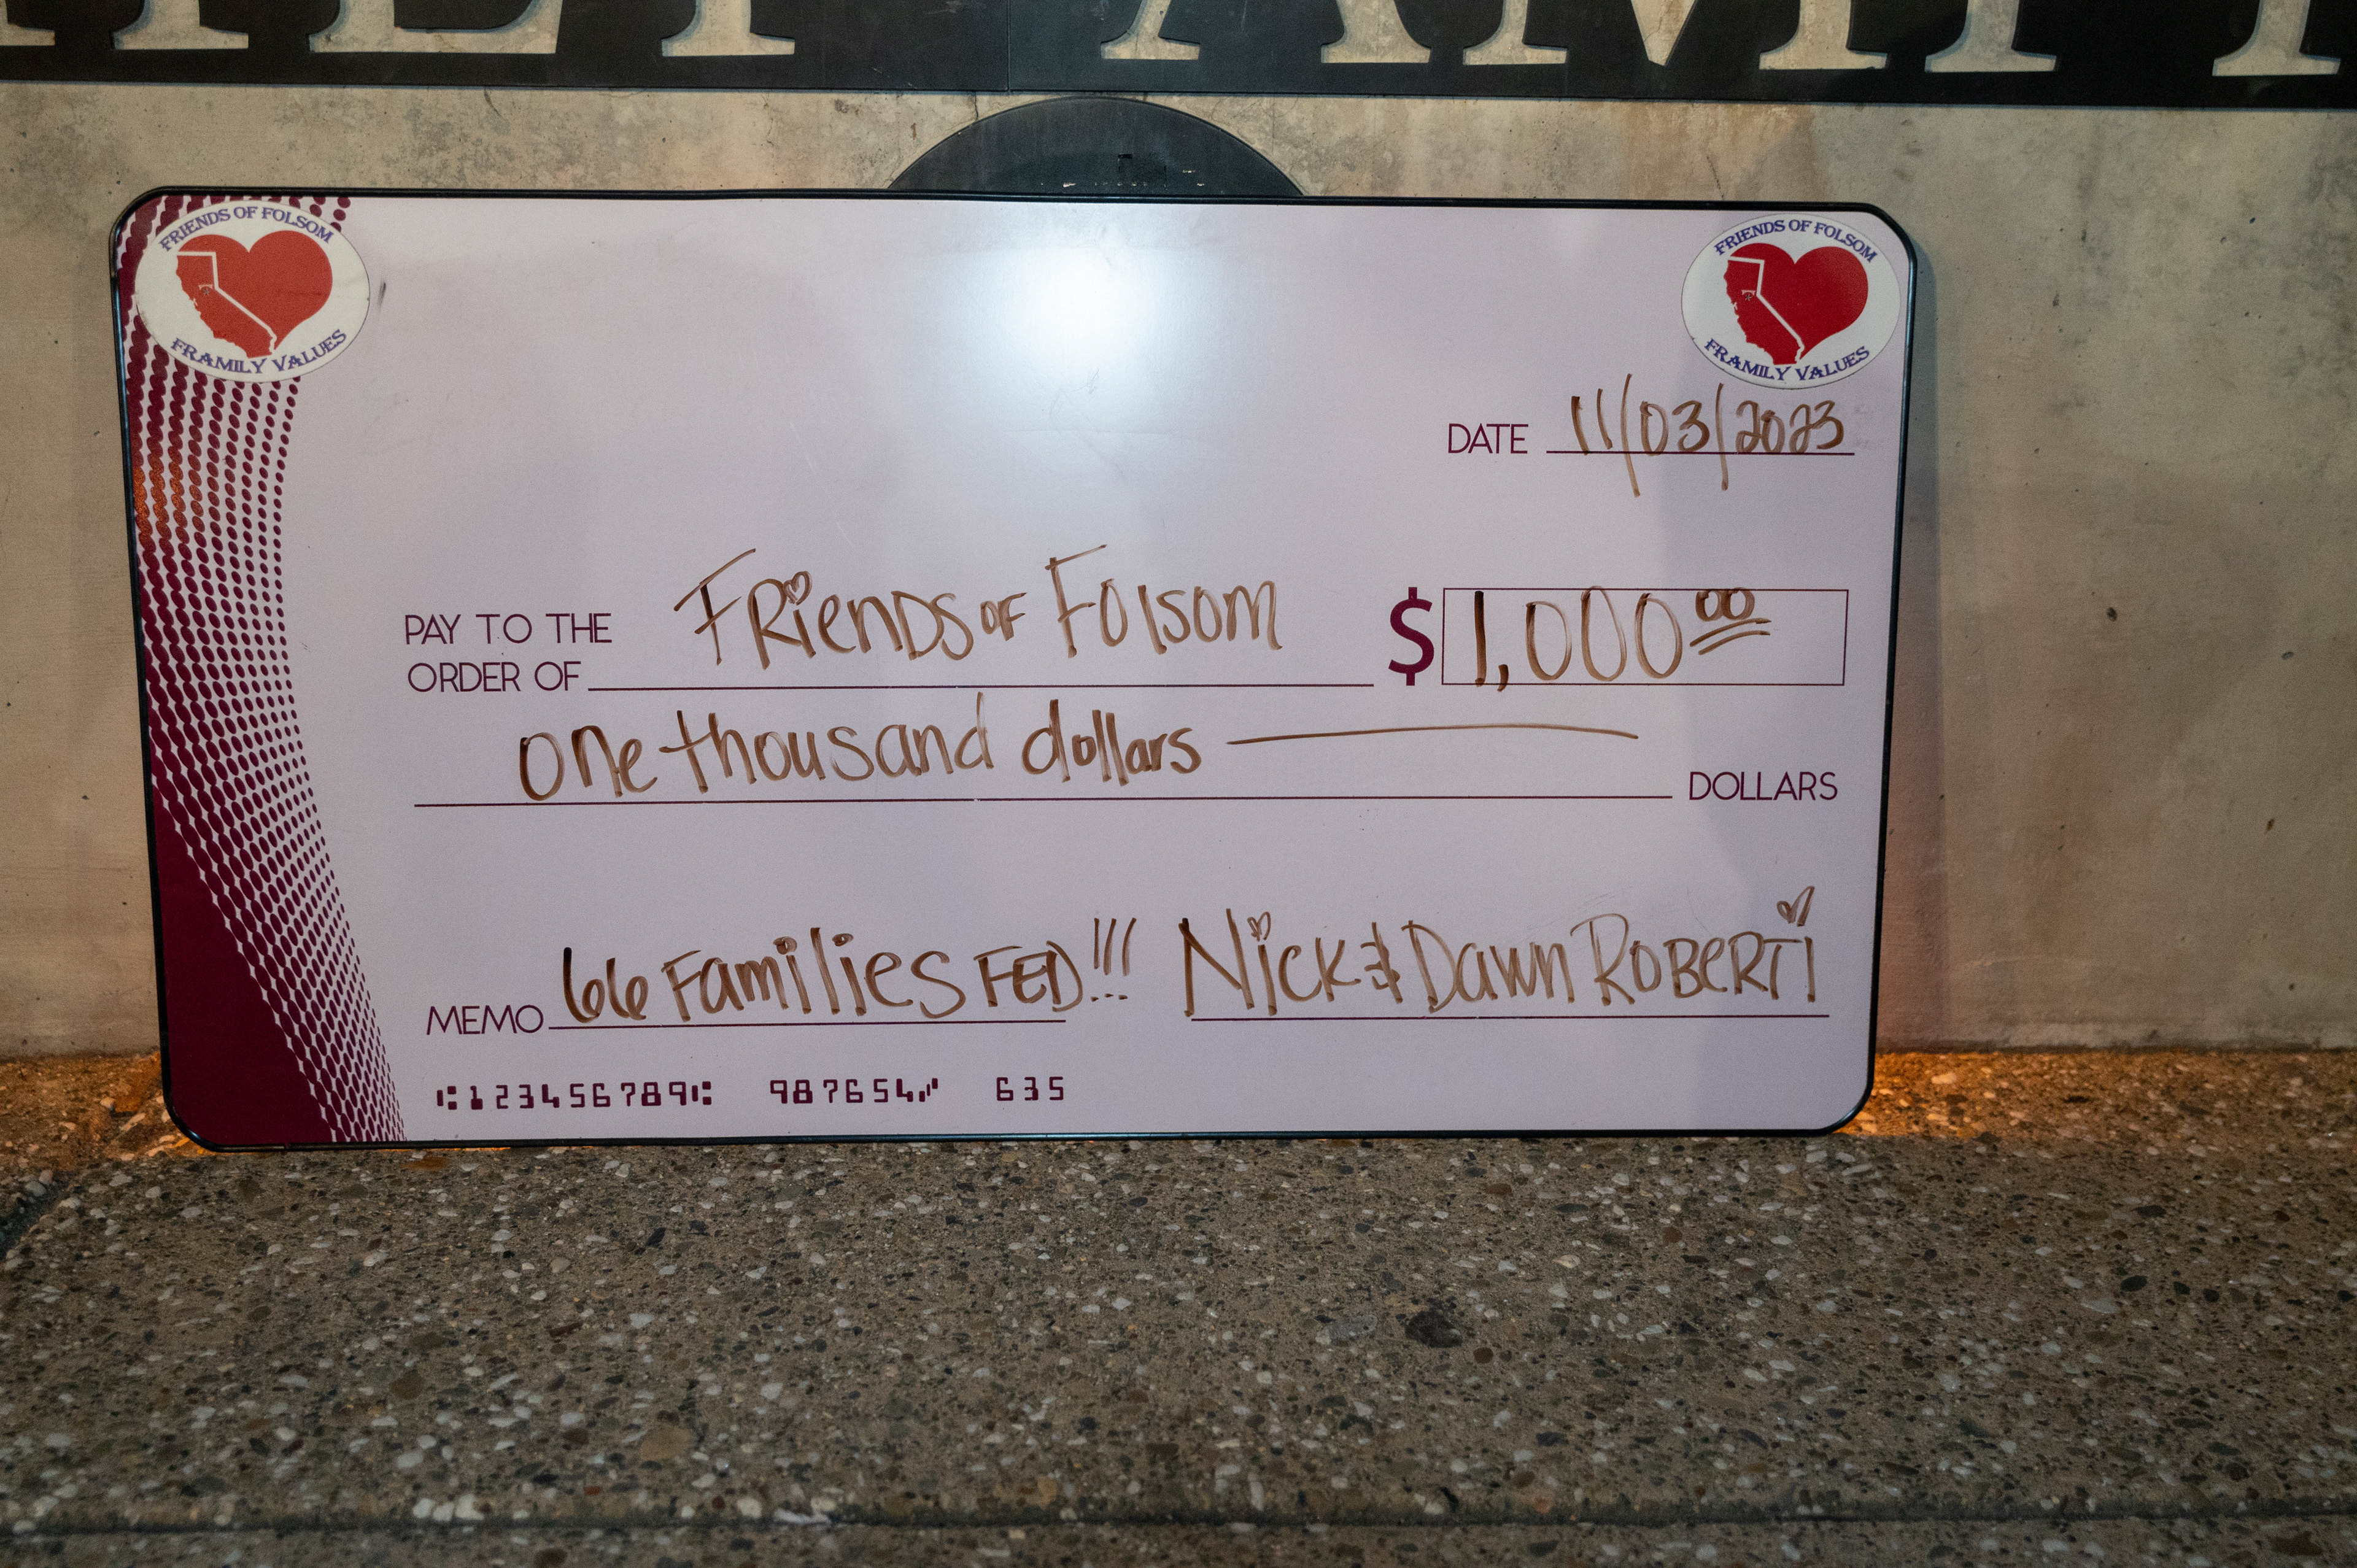 FRIENDS OF FOLSOM
FRAMILY VALUES
FRIENDS OF FOLSOM
FRAMILY VALUES
DATE 11/03/2023
PAY TO THE
ORDER OF FRiENDS OF FOlsom $ 1,000 00
one thousand dollars DOLLARS
MEMO 66 Families FED!!! Nick & Dawn ROBERTi
123456789 987654 635